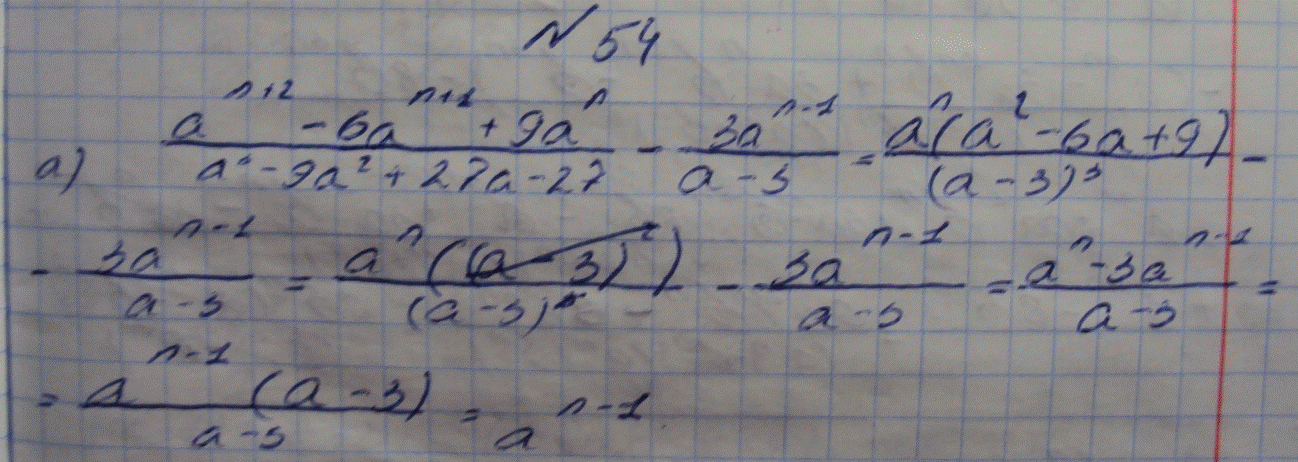 № 54
а) (a^{n+2} - 6a^{n+1} + 9a^{n})/(a³ - 9a² + 27a - 27) - 3a^{n-1}/(a - 3) = a^{n}(a² - 6a + 9)/(a - 3)³ -
- 3a^{n-1}/(a - 3) = a^{n}((a - 3)²)/(a - 3)³ - 3a^{n-1}/(a - 3) = (a^{n} - 3a^{n-1})/(a - 3) =
= a^{n-1}(a - 3)/(a - 3) = a^{n-1}